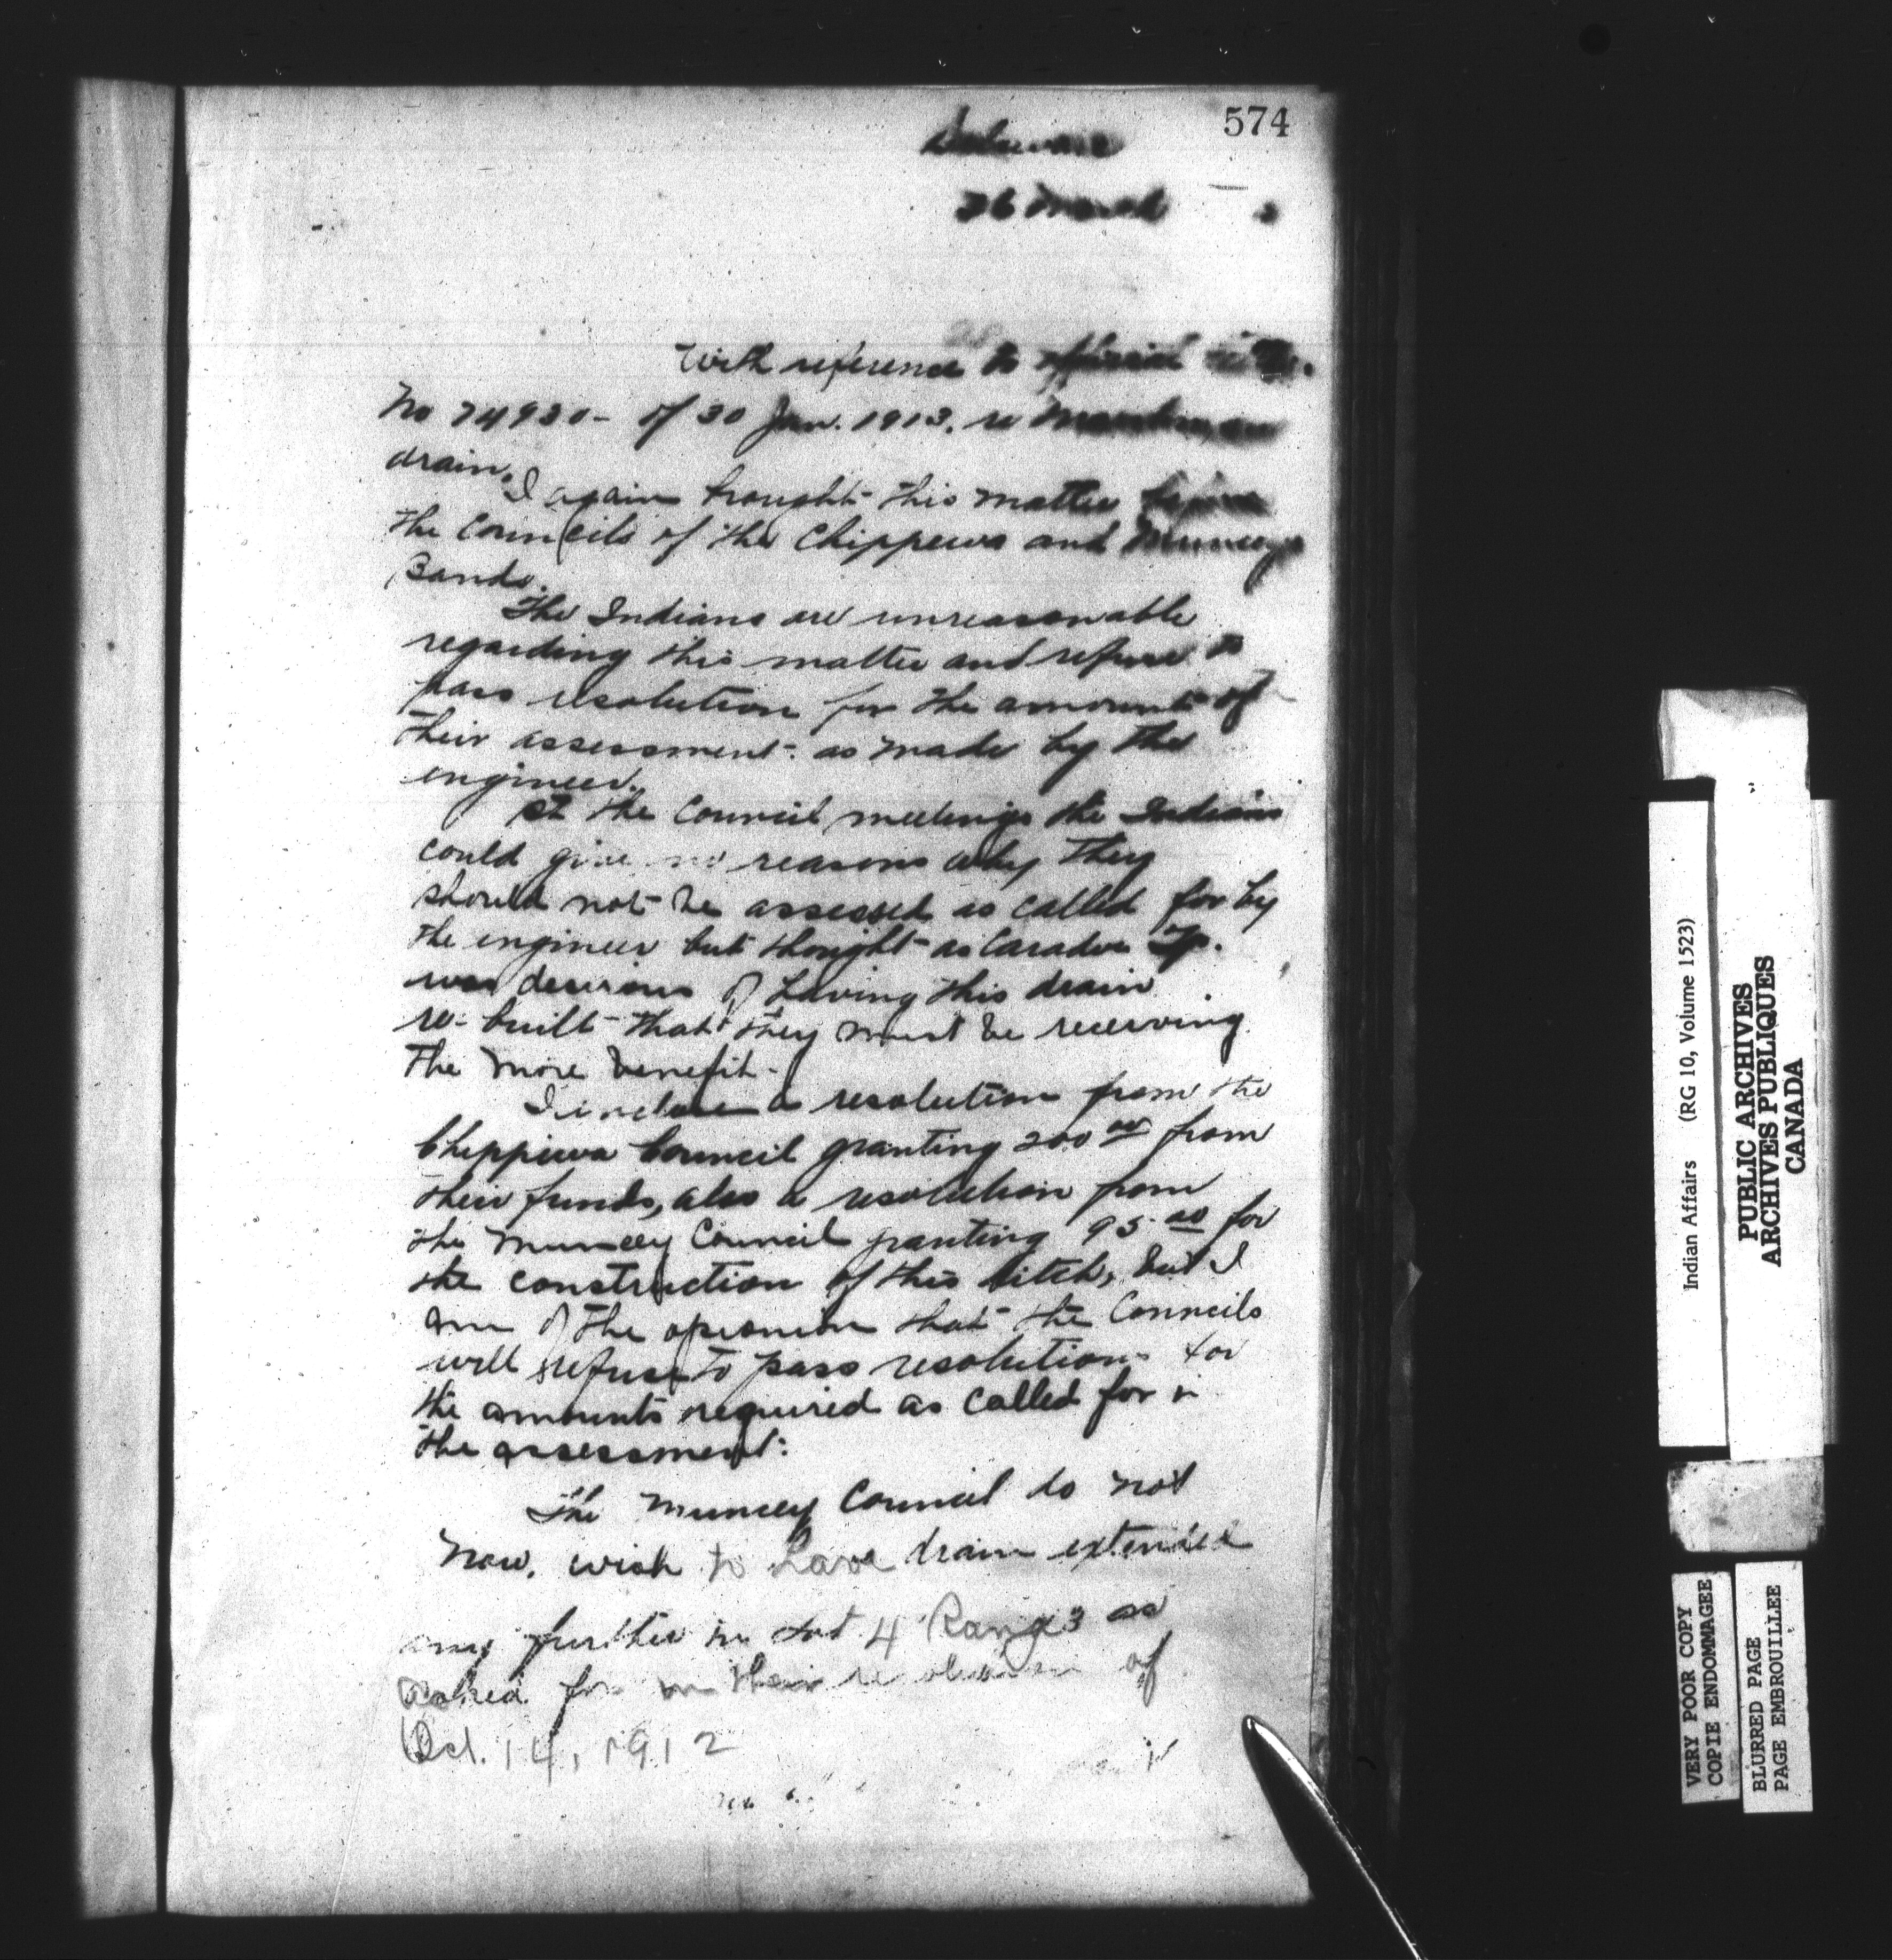 574
Delaware
26 March 3
With reference to official letter
No 74930- of 30 Jan. 1913. re
drain.
I again brought this matter before
the Councils of the Chippewa and Muncey
Bands.
The Indians are unreasonable
regarding this matter and refuse to
pass resolution for the amounts of
their assessment as made by the
engineer.
At the Council meetings the Indians
could give no reasons why they
should not be assessed as called for by
the engineer but thought as Caradoc Tp.
was desirous of having this drain
re-built that they must be receiving
the more benefit.
I enclose a resolution from the
Chippewa Council granting 200 00 from
their funds, also a resolution from
the Muncey Council granting 95 00 for
the construction of this ditch, but I
am of the opionion that the Councils
will refuse to pass resolutions for
the amounts required as called for in
the assessment.
The Muncey Council do not
now, wish to have drain extended
any further in Lot 4 Range 3 as
asked for in their resolution of
Oct. 14, 1912
Indian Affairs (RG 10, Volume 1523)
PUBLIC ARCHIVES
ARCHIVES PUBLIQUES
CANADA
VERY POOR COPY
COPIE ENDOMMAGEE
BLURRED PAGE
PAGE EMBROUILLEE